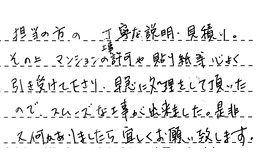 担当の方の丁寧な説明・見積り。
その上マンションの許可や貼り紙もいよく
引き受けて下さり、早急に処理をして頂いた
ので、スムーズな工事が出来ました。是非
又何かありましたら宜しくお願い致します。